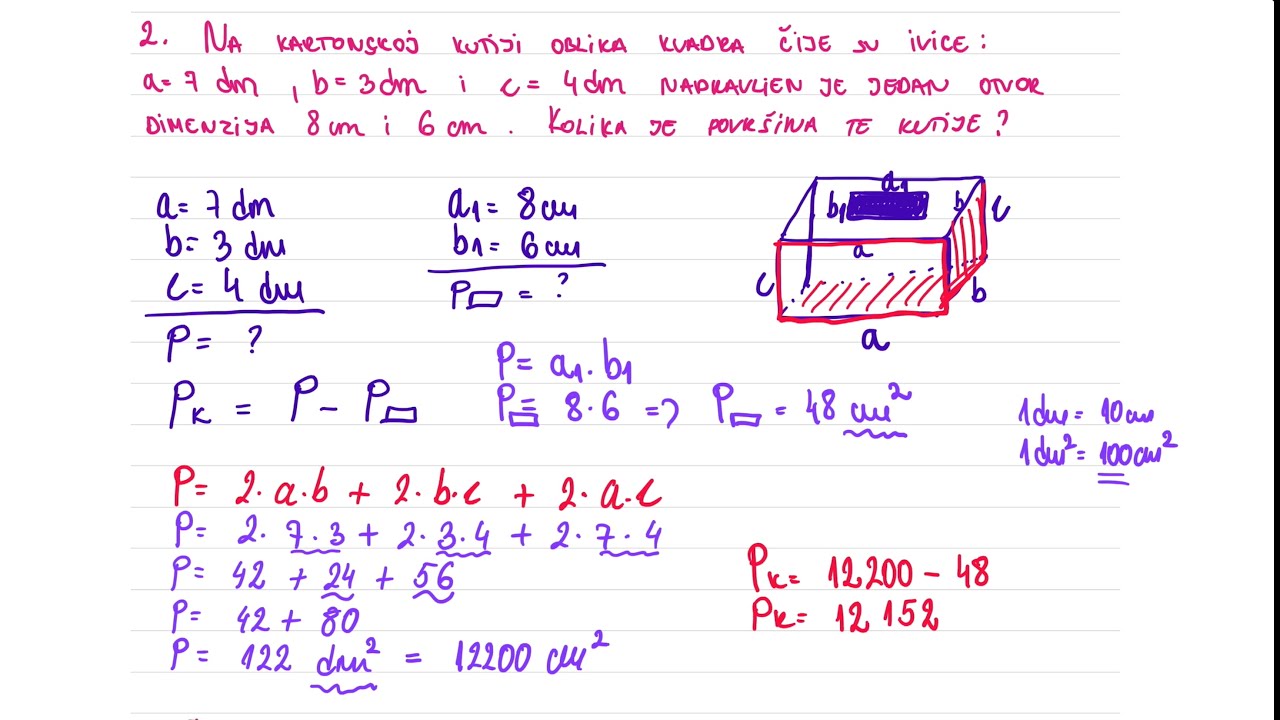 2. NA KARTONSKOJ KUTIJI OBLIKA KVADRA ČIJE SU IVICE:
a = 7 dm, b = 3 dm i c = 4 dm NAPRAVLJEN JE JEDAN OTVOR
DIMENZIJA 8 cm i 6 cm. KOLIKA JE POVRŠINA TE KUTIJE?
a = 7 dm
b = 3 dm
c = 4 dm
P = ?
a1 = 8 cm
b1 = 6 cm
P▭ = ?
a1
b1
b
c
a
c
b
a
P = a1 · b1
PK = P - P▭
P▭ = 8 · 6 => P▭ = 48 cm²
1 dm = 10 cm
1 dm² = 100 cm²
P = 2 · a · b + 2 · b · c + 2 · a · c
P = 2 · 7 · 3 + 2 · 3 · 4 + 2 · 7 · 4
P = 42 + 24 + 56
P = 42 + 80
P = 122 dm² = 12200 cm²
PK = 12200 - 48
PK = 12152